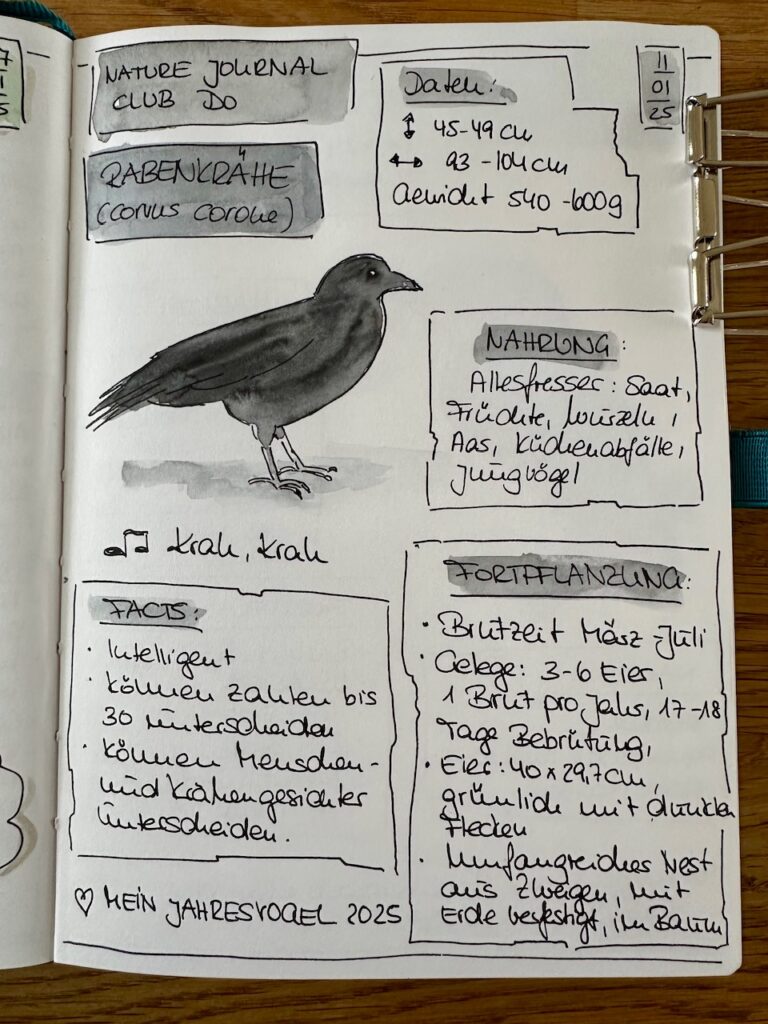 7
1
5
NATURE JOURNAL
CLUB DO
RABENKRÄHE
(Corvus corone)
Daten:
45-49 cm
93 -104 cm
Gewicht 540 -600g
11
01
25
NAHRUNG:
Allesfresser: Saat,
Früchte, Wurzeln,
Aas, Küchenabfälle,
Jungvögel
krah, krah
FACTS:
· Intelligent
· können Zahlen bis
30 unterscheiden
· können Menschen-
und Krähengesichter
unterscheiden.
FORTPFLANZUNG:
· Brutzeit März -Juli
· Gelege: 3-6 Eier,
1 Brut pro Jahr, 17-18
Tage Bebrütung,
· Eier: 40 x 29,7cm,
grünlich mit dunklen
Flecken
· Umfangreiches Nest
aus Zweigen, mit
Erde verfestigt, im Baum
♡ MEIN JAHRESVOGEL 2025